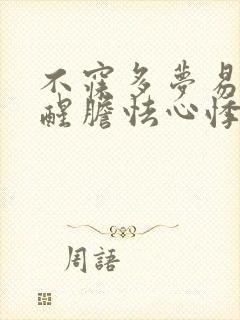 不寐多夢易
醒膽怯心悸
周語